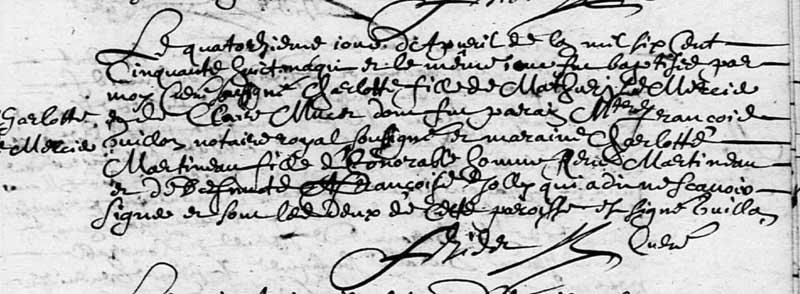 Le quatorzieme jour d'Apvril de l'an mil six cent
Cinquante huict naquit et le mesme jour fut baptisée par
moy Curé soussigné Charlotte fille de Mathurin Le Mercie
et de Claire Mucet dont fut parain Me François
Guillon notaire royal soussigné et maraine Charlotte
Martineau fille d'honorable homme René Martineau
et de deffuncte Françoise Jolly qui a dit ne scavoir
signer et sont les deux de cette paroisse et signé Guillon
Curé
Charlotte
le Mercie